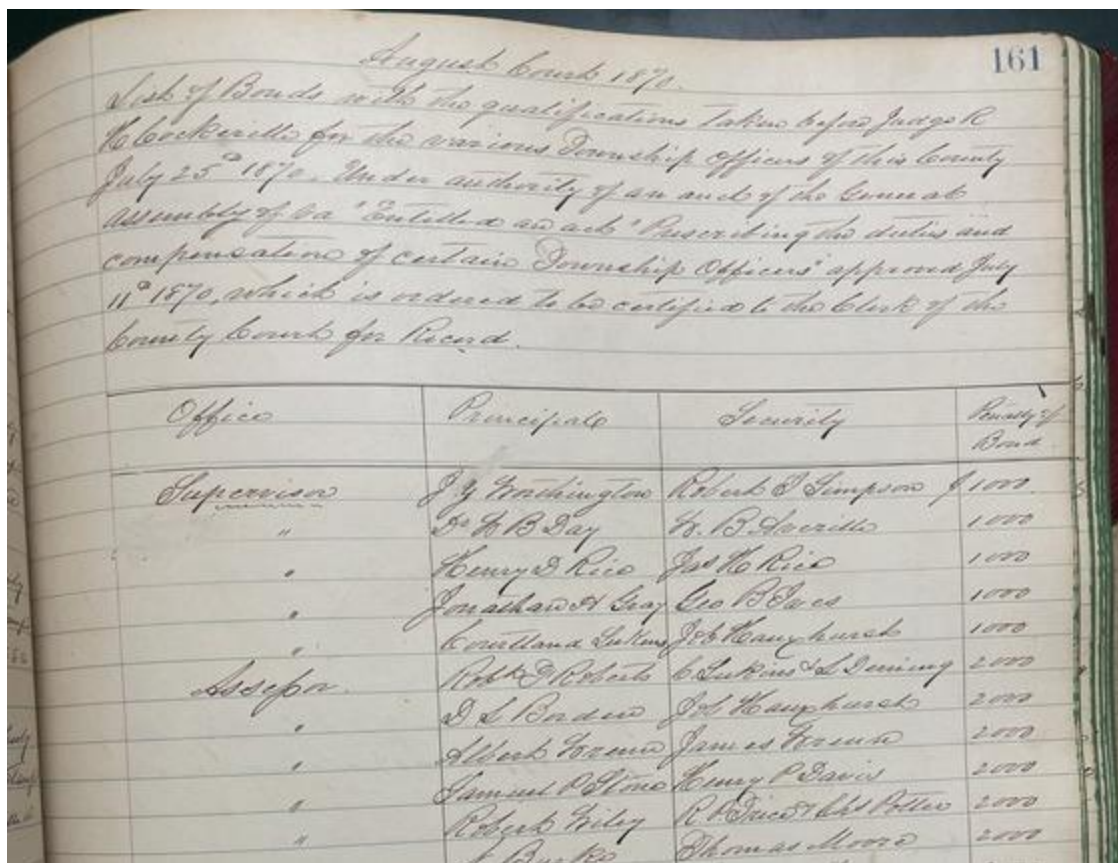 161
August Court 1870.
List of Bonds with the qualifications taken before Judge R
H Cockerille for the various Township officers of this County
July 25th 1870. Under authority of an act of the General
assembly of Va "Entitled an act "Prescribing the duties and
compensation of certain Township Officers" approved July
11th 1870, which is ordered to be certified to the Clerk of the
County Court for Record.
Office Principal Security Penalty of
Bond
Supervisor J Y Worthington Robert T Simpson $ 1000
" Dr W B Day W. B. Averille 1000
" Henry D Rice Jas H Rice 1000
" Jonathan A Gray Geo B Ives 1000
" Courtland Lukens Job Hauxhurst 1000
Assessor. Robt D Roberts C Lukins & L Deming 2000
" D L Borden Job Hauxhurst 2000
" Albert Wrenn James Wrenn 2000
" Samuel P Stone Henry P Davis 2000
" Robert Wiley R P Potter 2000
Burke Thomas Moore 2000